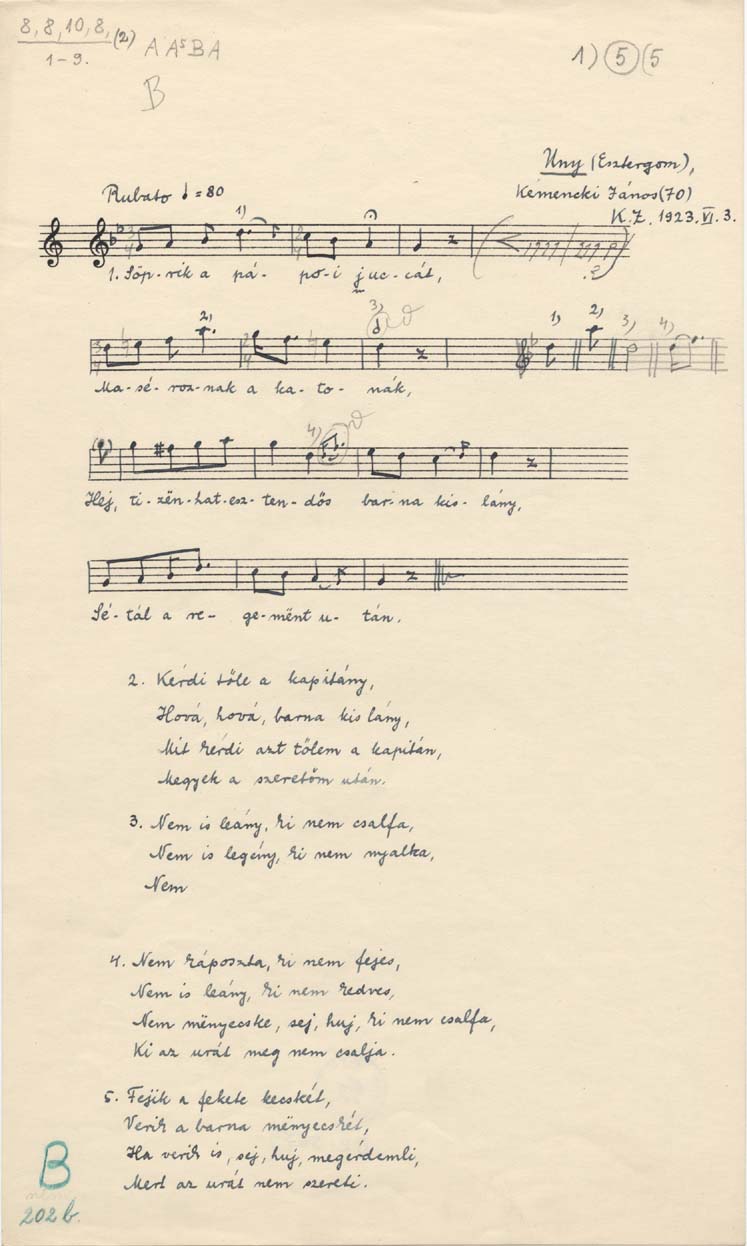 8, 8, 10, 8, (2) A A⁵ B A
1-9.
B
1) 5 (5
Uny (Esztergom),
Kemencki János (70)
K. Z. 1923. VI. 3.
Rubato = 80
1)
1. Söp-rik a pá- po-i juc-cát,
2) 3) 1) 2) 3) 4)
Ma-sé-roz-nak a ka-to-nák,
4)
Hej, ti-zën-hat-esz-ten-dős bar-na kis-lány,
Sé-tál a re- ge-mënt u-tán.
2. Kérdi tőle a kapitány,
Hová, hová, barna kis lány,
Mit kérdi azt tőlem a kapitán,
Megyek a szeretőm után.
3. Nem is leány, ki nem csalfa,
Nem is legény, ki nem nyalka,
Nem
4. Nem káposzta, ki nem fejes,
Nem is leány, ki nem kedves,
Nem mënyecske, sej, huj, ki nem csalfa,
Ki az urát meg nem csalja.
5. Fejik a fekete kecskét,
Verik a barna mënyecskét,
Ha verik is, sej, huj, megérdemli,
Mert az urát nem szereti.
B
202 b.